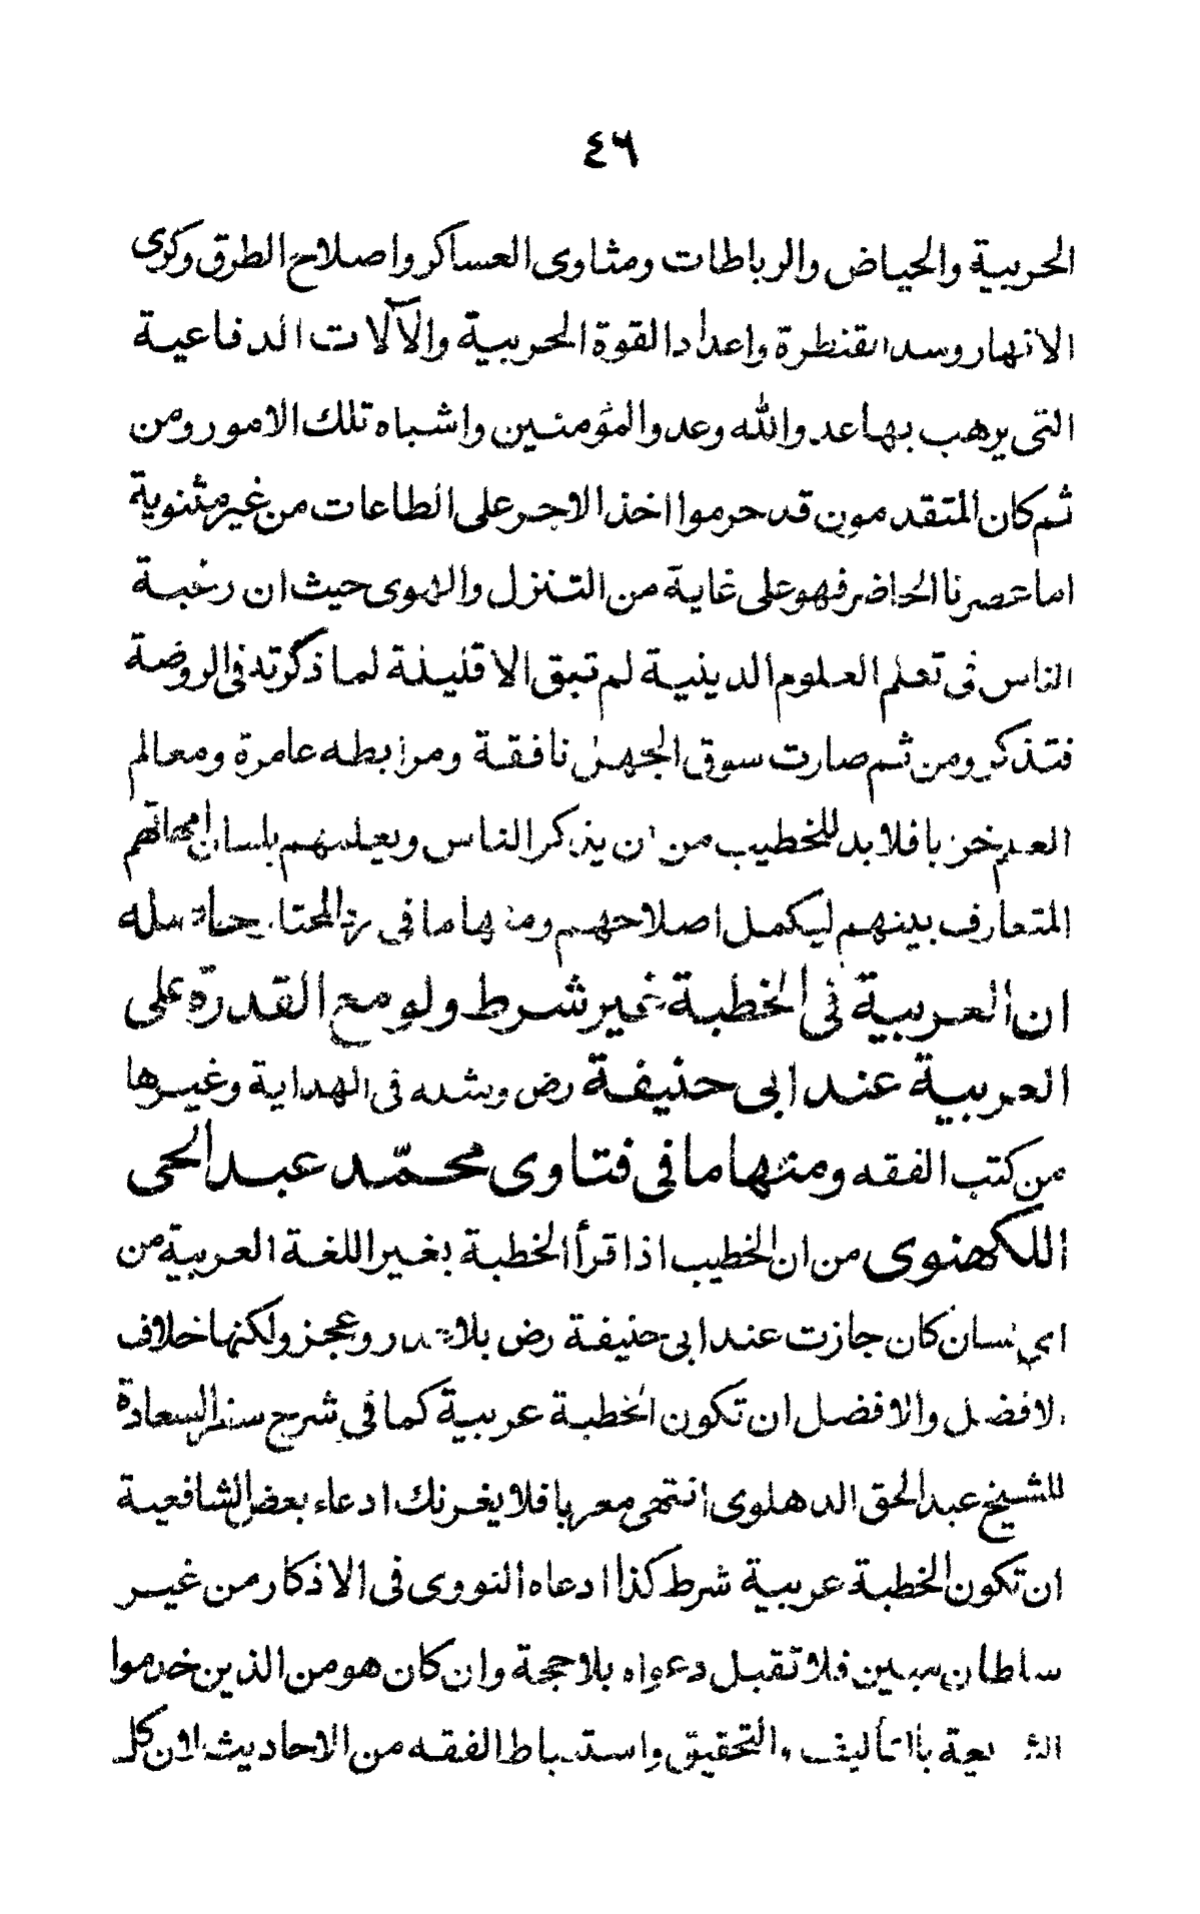 ٤٦
الحربية والحياض والرباطات ومثاوى العساكر واصلاح الطرق وكرى
الانهار وسد القنطرة واعداد القوة الحربية والآلات الدفاعية
التى يرهب بها عدو الله وعدو المؤمنين واشباه تلك الامور ومن
ثم كان المتقدمون قد حرموا اخذ الاجر على الطاعات من غير مثنوية
اما عصرنا الحاضر فهو على غاية من التنزل والهوى حيث ان رغبة
الناس فى تعلم العلوم الدينية لم تبق الا قليلة لما ذكرته فى الروضة
فتذكر ومن ثم صارت سوق الجهل نافقة ومرابطه عامرة ومعالم
العلم خربا فلابد للخطيب من ان يذكر الناس ويعلمهم بلسان امهاتهم
المتعارف بينهم ليكمل اصلاحهم ومنها ما فى رد المحتار
ان العربية فى الخطبة غير شرط ولو مع القدرة على
العربية عند ابى حنيفة رض ومثله فى الهداية وغيرها
من كتب الفقه ومنها ما فى فتاوى محمّد عبد الحى
اللكهنوى من ان الخطيب اذا قرأ الخطبة بغير اللغة العربية من
اى لسان كان جازت عند ابى حنيفة رض بلا وعجز ولكنها خلاف
الافضل والافضل ان تكون الخطبة عربية كما فى شرح سفر السعادة
للشيخ عبد الحق الدهلوى انتهى معربا فلا يغرنك ادعاء بعض الشافعية
ان تكون الخطبة عربية شرط كذا ادعاه النووى فى الاذكار من غير
سلطان مبين فلا تقبل دعواه بلا حجة وان كان هو من الذين خدموا
الشريعة بالتأليف والتحقيق واستنباط الفقه من الاحاديث لان كل